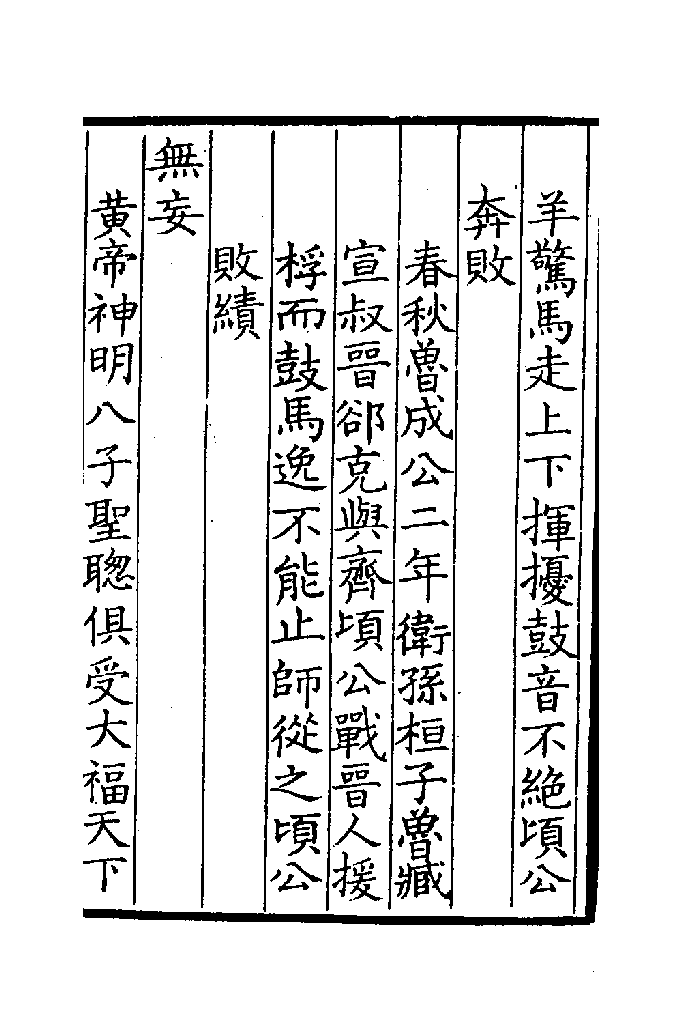 羊驚馬走上下揮擾鼓音不絶頃公
奔敗
春秋魯成公二年衛孫桓子魯臧
宣叔晉郤克與齊頃公戰晉人援
桴而鼓馬逸不能止師從之頃公
敗績
無妄
黄帝神明八子聖聰俱受大福天下